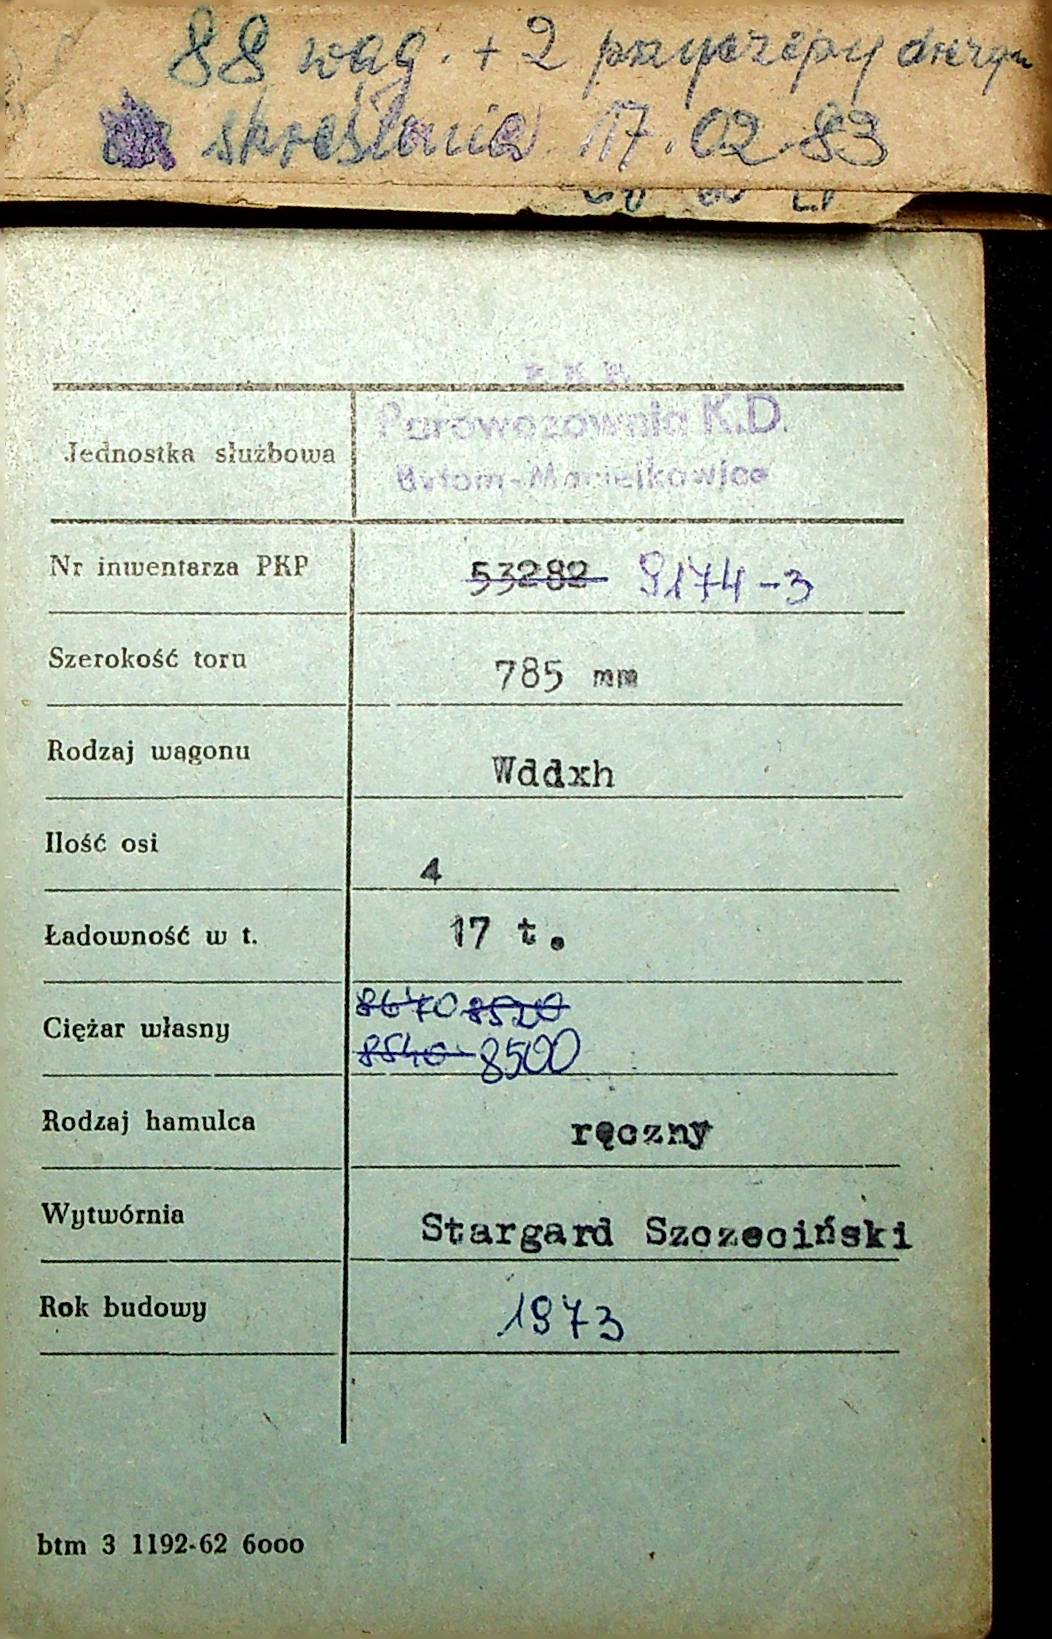 88 wag. + 2 przyczepy drezyn
skreślenie 17.02.83
P.K.P.
Parowozownia K.D.
Bytom-Maciejkowice
Jednostka służbowa
Nr inwentarza PKP 53282 9174-3
Szerokość toru 785 mm
Rodzaj wagonu Wddxh
Ilość osi 4
Ładowność w t. 17 t.
8670 8520
Ciężar własny 8540 8500
Rodzaj hamulca ręczny
Wytwórnia Stargard Szczeciński
Rok budowy 1973
btm 3 1192-62 6000